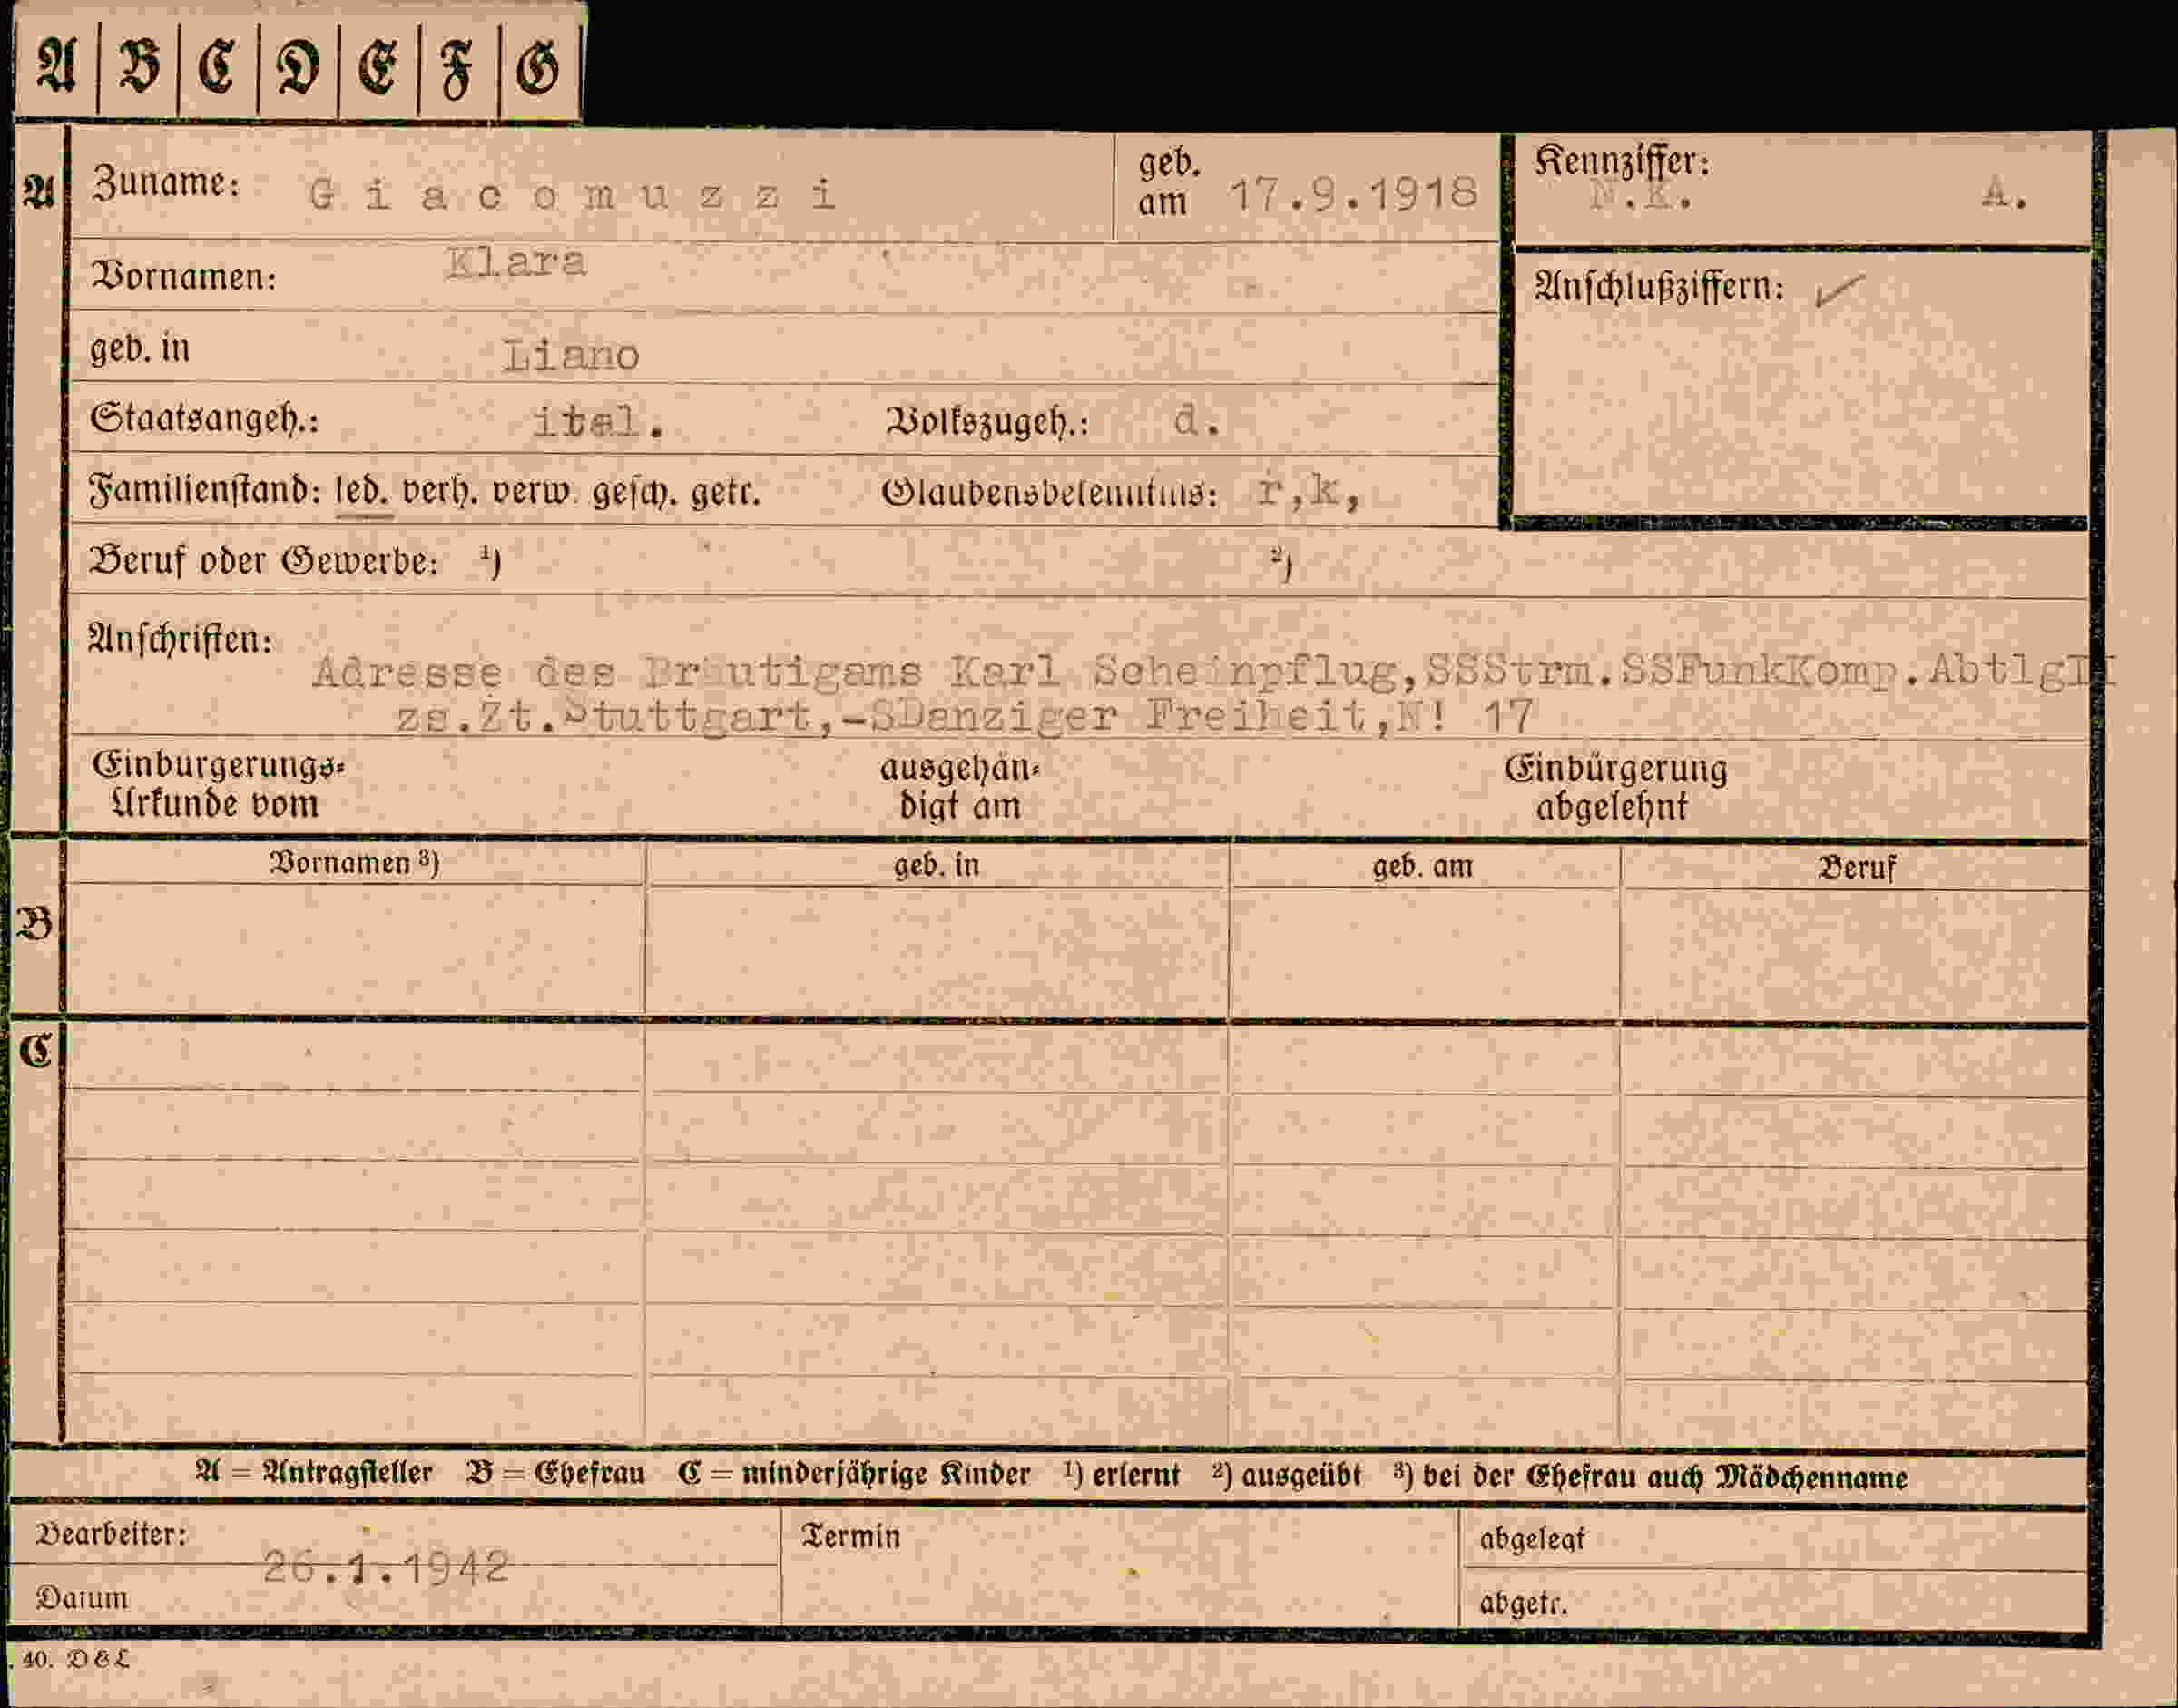 A B C D E F G
A Zuname: Giacomuzzi geb. am 17.9.1918 Kennziffer: N.K. A.
Vornamen: Klara
Anschlußziffern: ✓
geb. in Liano
Staatsangeh.: ital. Volkszugeh.: d.
Familienstand: led. verh. verw. gesch. getr. Glaubensbekenntnis: r,k,
Beruf oder Gewerbe: ¹) ²)
Anschriften:
Adresse des Bräutigams Karl Scheinpflug,SSStrm.SSFunkKomp.AbtlgII
zs.Zt.Stuttgart,-SDanziger Freiheit,N! 17
Einbürgerungs- ausgehän- Einbürgerung
Urkunde vom digt am abgelehnt
Vornamen ³) geb. in geb. am Beruf
B
C
A = Antragsteller B = Ehefrau C = minderjährige Kinder ¹) erlernt ²) ausgeübt ³) bei der Ehefrau auch Mädchenname
Bearbeiter: Termin abgelegt
26.1.1942
Datum abgetr.
40. D&L